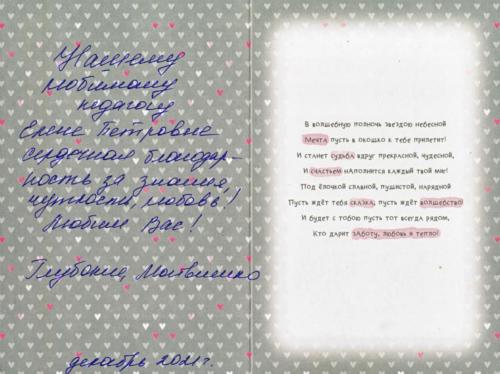 Нашему
любимому
педагогу
Елене Петровне
сердечная благодар-
ность за знания,
чуткость, любовь!
Любим Вас!
декабрь 2021г.
В волшебную полночь звездою небесной
Мечта пусть в окошко к тебе прилетит!
И станет судьба вдруг прекрасной, чудесной,
И счастьем наполнится каждый твой миг!
Под ёлочкой славной, пушистой, нарядной
Пусть ждёт тебя сказка, пусть ждёт волшебство!
И будет с тобою пусть тот всегда рядом,
Кто дарит заботу, любовь и тепло!